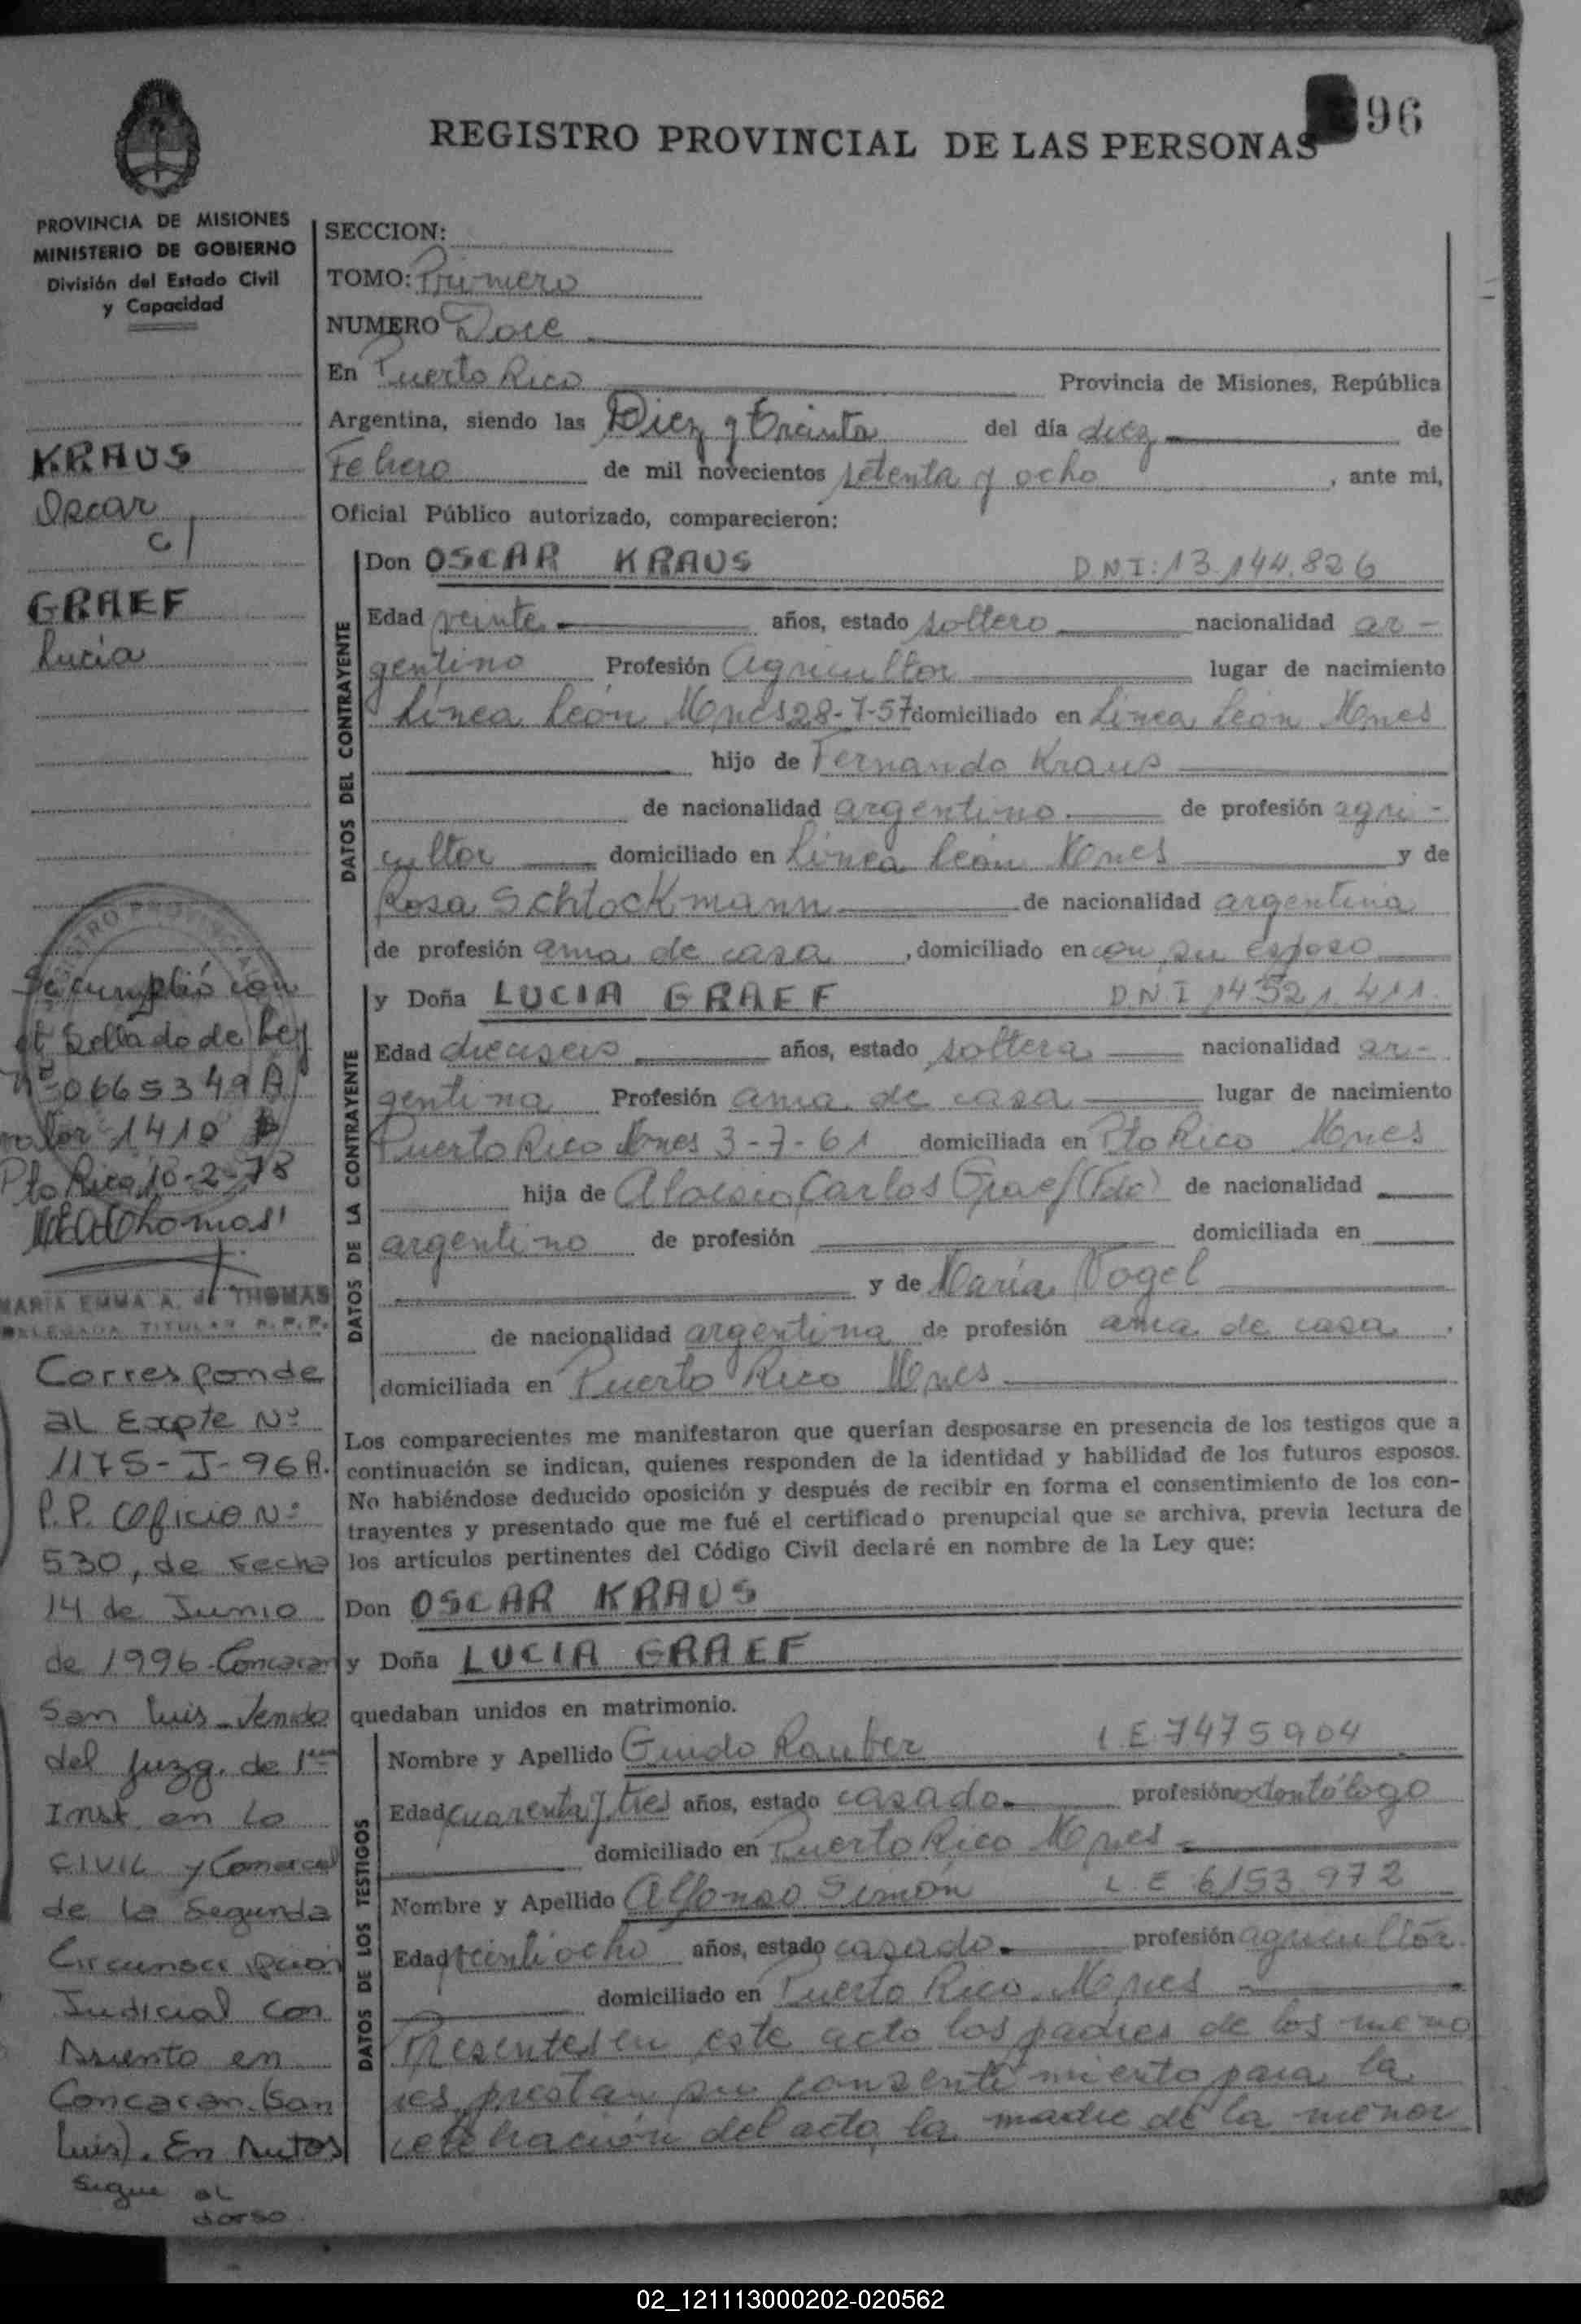 96
REGISTRO PROVINCIAL DE LAS PERSONAS
PROVINCIA DE MISIONES
MINISTERIO DE GOBIERNO
División del Estado Civil
y Capacidad
KRAUS
Oscar
c/
GRAEF
Lucia
Se cumplió con
el Sellado de Ley
Nº 0665349 A
valor 1410
Pto Rico 10-2-78
MARIA EMMA A. de THOMAS
DELEGADA TITULAR R.P.P.
Corresponde
al Expte Nº
1175-J-96 A.
P.P. Oficio Nº
530, de fecha
14 de Junio
de 1996-Concaran
San Luis-Venido
del Juzg. de 1ra
Inst. en Lo
CIVIL y Comercial
de la Segunda
Circunscripción
Judicial con
Asiento en
Concaran (San
Luis). En Autos
Sigue al
dorso
SECCION:
TOMO: Primero
NUMERO Doce
En Puerto Rico Provincia de Misiones, República
Argentina, siendo las Diez y Treinta del día diez de
Febrero de mil novecientos setenta y ocho, ante mi,
Oficial Público autorizado, comparecieron:
DATOS DEL CONTRAYENTE
Don OSCAR KRAUS D.N.I: 13.144.826
Edad veinte años, estado soltero nacionalidad ar-
gentino Profesión agricultor lugar de nacimiento
Línea León Mnes 28-7-57 domiciliado en Línea León Mnes
hijo de Fernando Kraus
de nacionalidad argentino de profesión agri-
cultor domiciliado en Línea León Mnes y de
Rosa Schlockmann de nacionalidad argentina
de profesión ama de casa, domiciliado en con su esposo
DATOS DE LA CONTRAYENTE
y Doña LUCIA GRAEF D.N.I 14.521.411
Edad dieciseis años, estado soltera nacionalidad ar-
gentina Profesión ama de casa lugar de nacimiento
Puerto Rico Mnes 3-7-61 domiciliada en Pto Rico Mnes
hija de Aloisio Carlos Graef (Fdo) de nacionalidad
argentino de profesión domiciliada en
y de María Vogel
de nacionalidad argentina de profesión ama de casa
domiciliada en Puerto Rico Mnes
Los comparecientes me manifestaron que querían desposarse en presencia de los testigos que a
continuación se indican, quienes responden de la identidad y habilidad de los futuros esposos.
No habiéndose deducido oposición y después de recibir en forma el consentimiento de los con-
trayentes y presentado que me fué el certificado prenupcial que se archiva, previa lectura de
los artículos pertinentes del Código Civil declaré en nombre de la Ley que:
Don OSCAR KRAUS
y Doña LUCIA GRAEF
quedaban unidos en matrimonio.
DATOS DE LOS TESTIGOS
Nombre y Apellido Guido Rauber L.E 7475904
Edad cuarenta y tres años, estado casado profesión odontólogo
domiciliado en Puerto Rico Mnes
Nombre y Apellido Alfonso Simón L.E 6153.972
Edad años, estado casado profesión agricultor
domiciliado en Puerto Rico Mnes
Presentes en este acto los padres de los meno
res prestan su consentimiento para la
celebración del acto, la madre de la menor
02_121113000202-020562